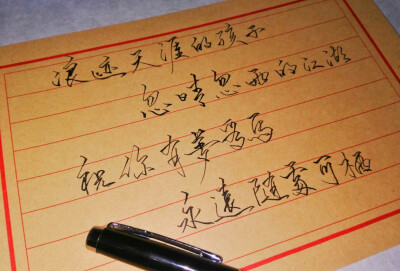 浪迹天涯的孩子
忽晴忽雨的江湖
祝你有夢為马
永遠随處可栖